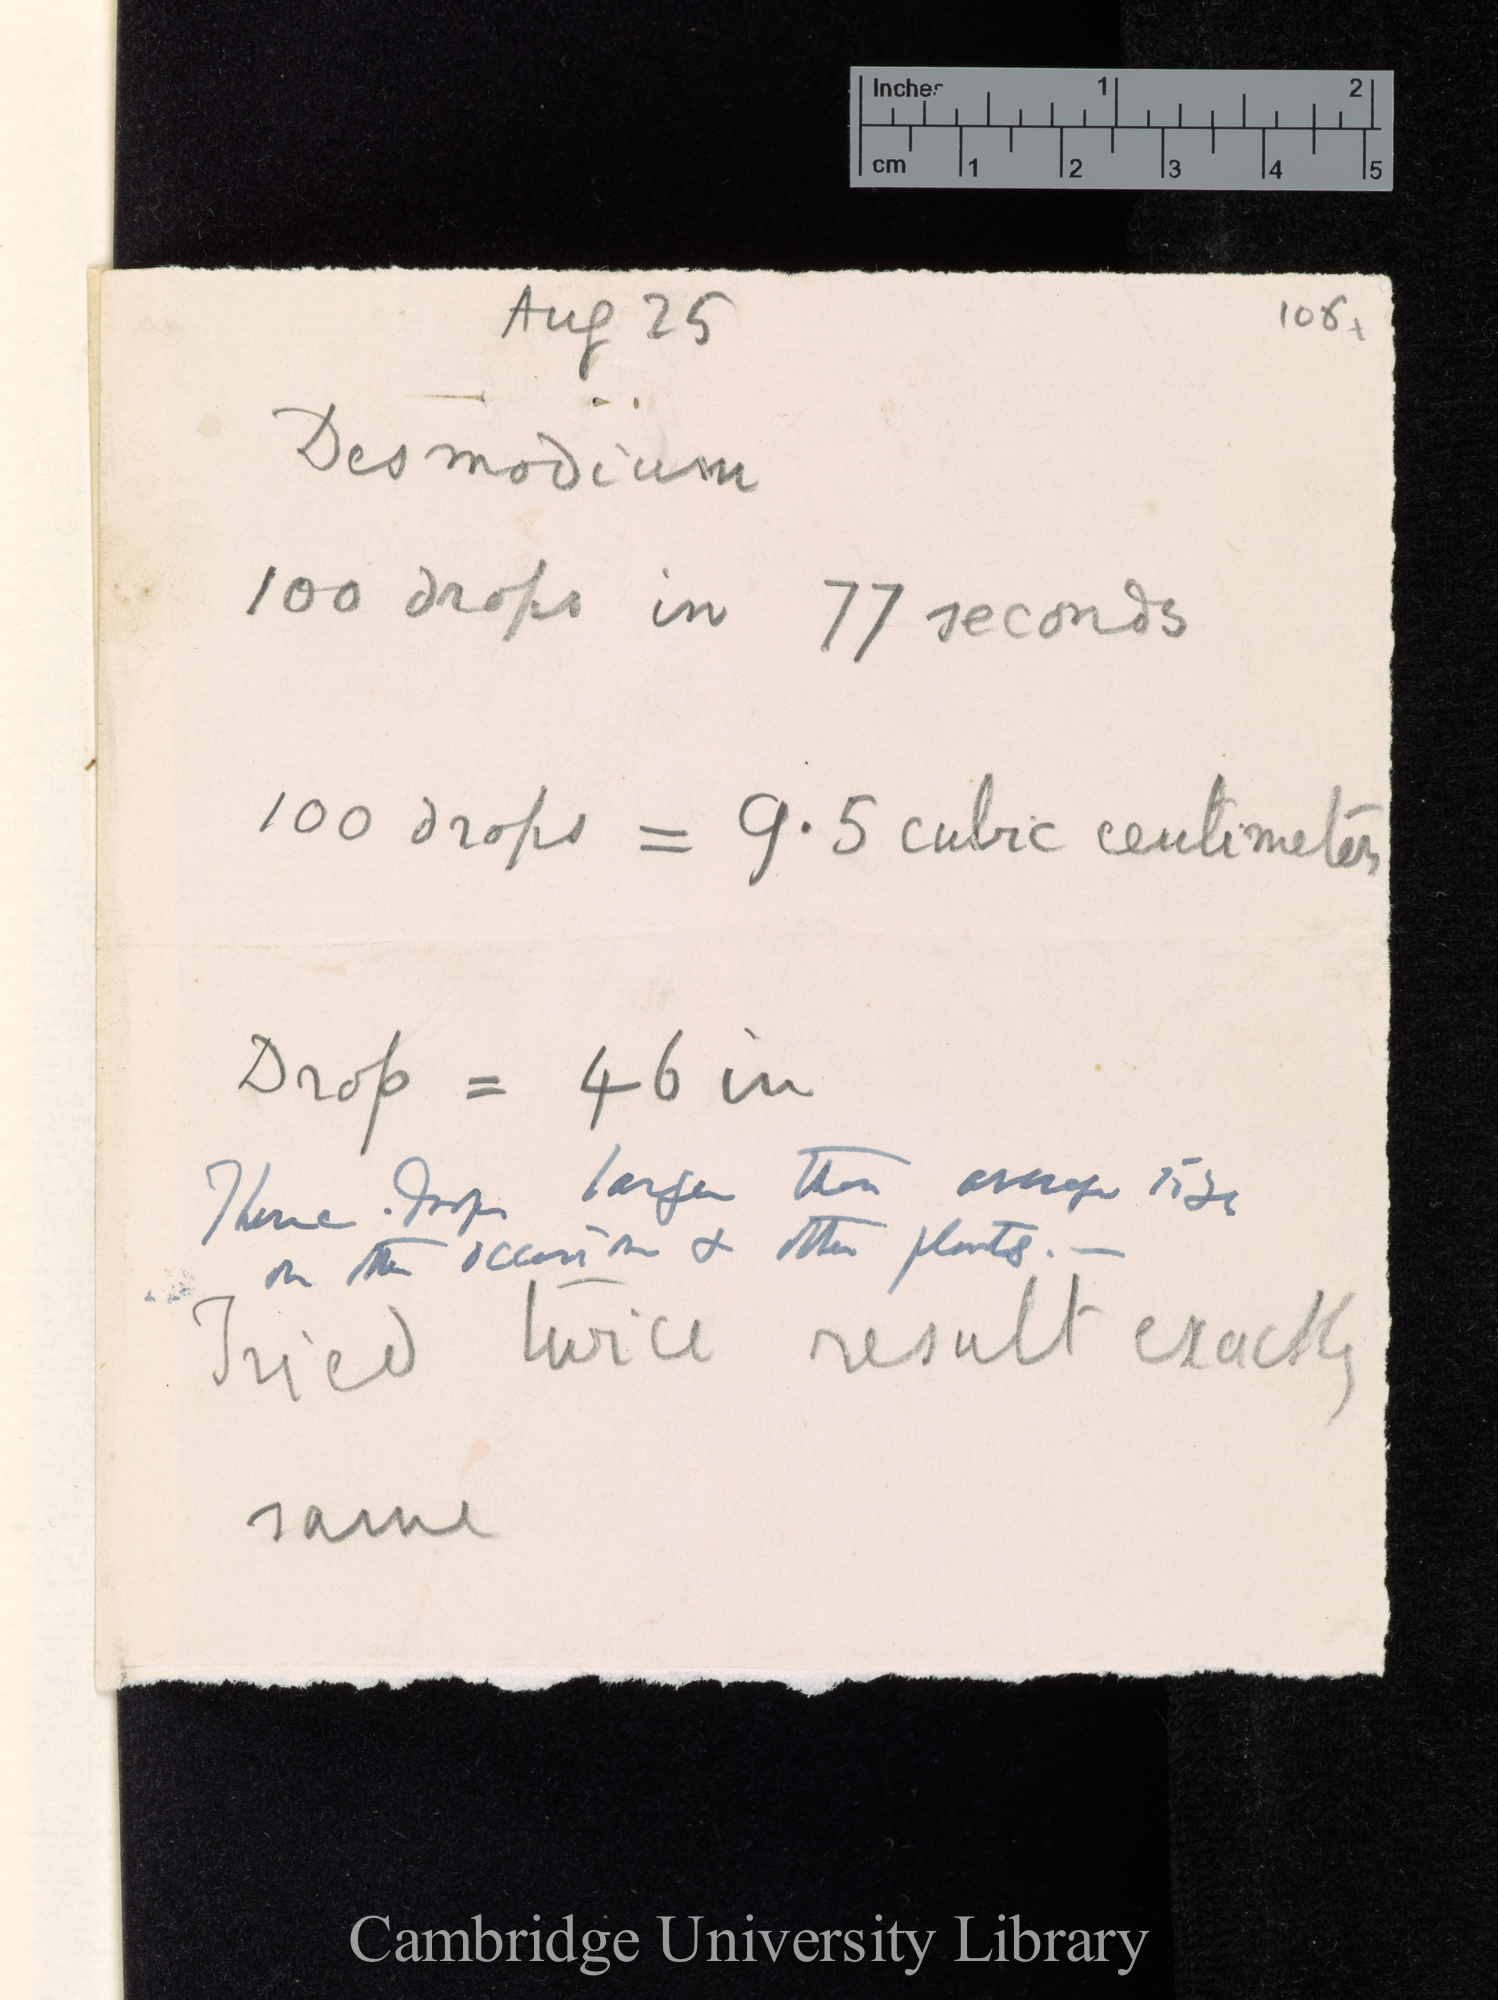 Inches 1 2
cm 1 2 3 4 5
Aug 25
Desmodium
100 drops in 77 seconds
100 drops = 9.5 cubic centimeters
Drop = 46 in
These drops larger than average size
on this occasion & other plants. —
Tried twice result exactly
same
Cambridge University Library